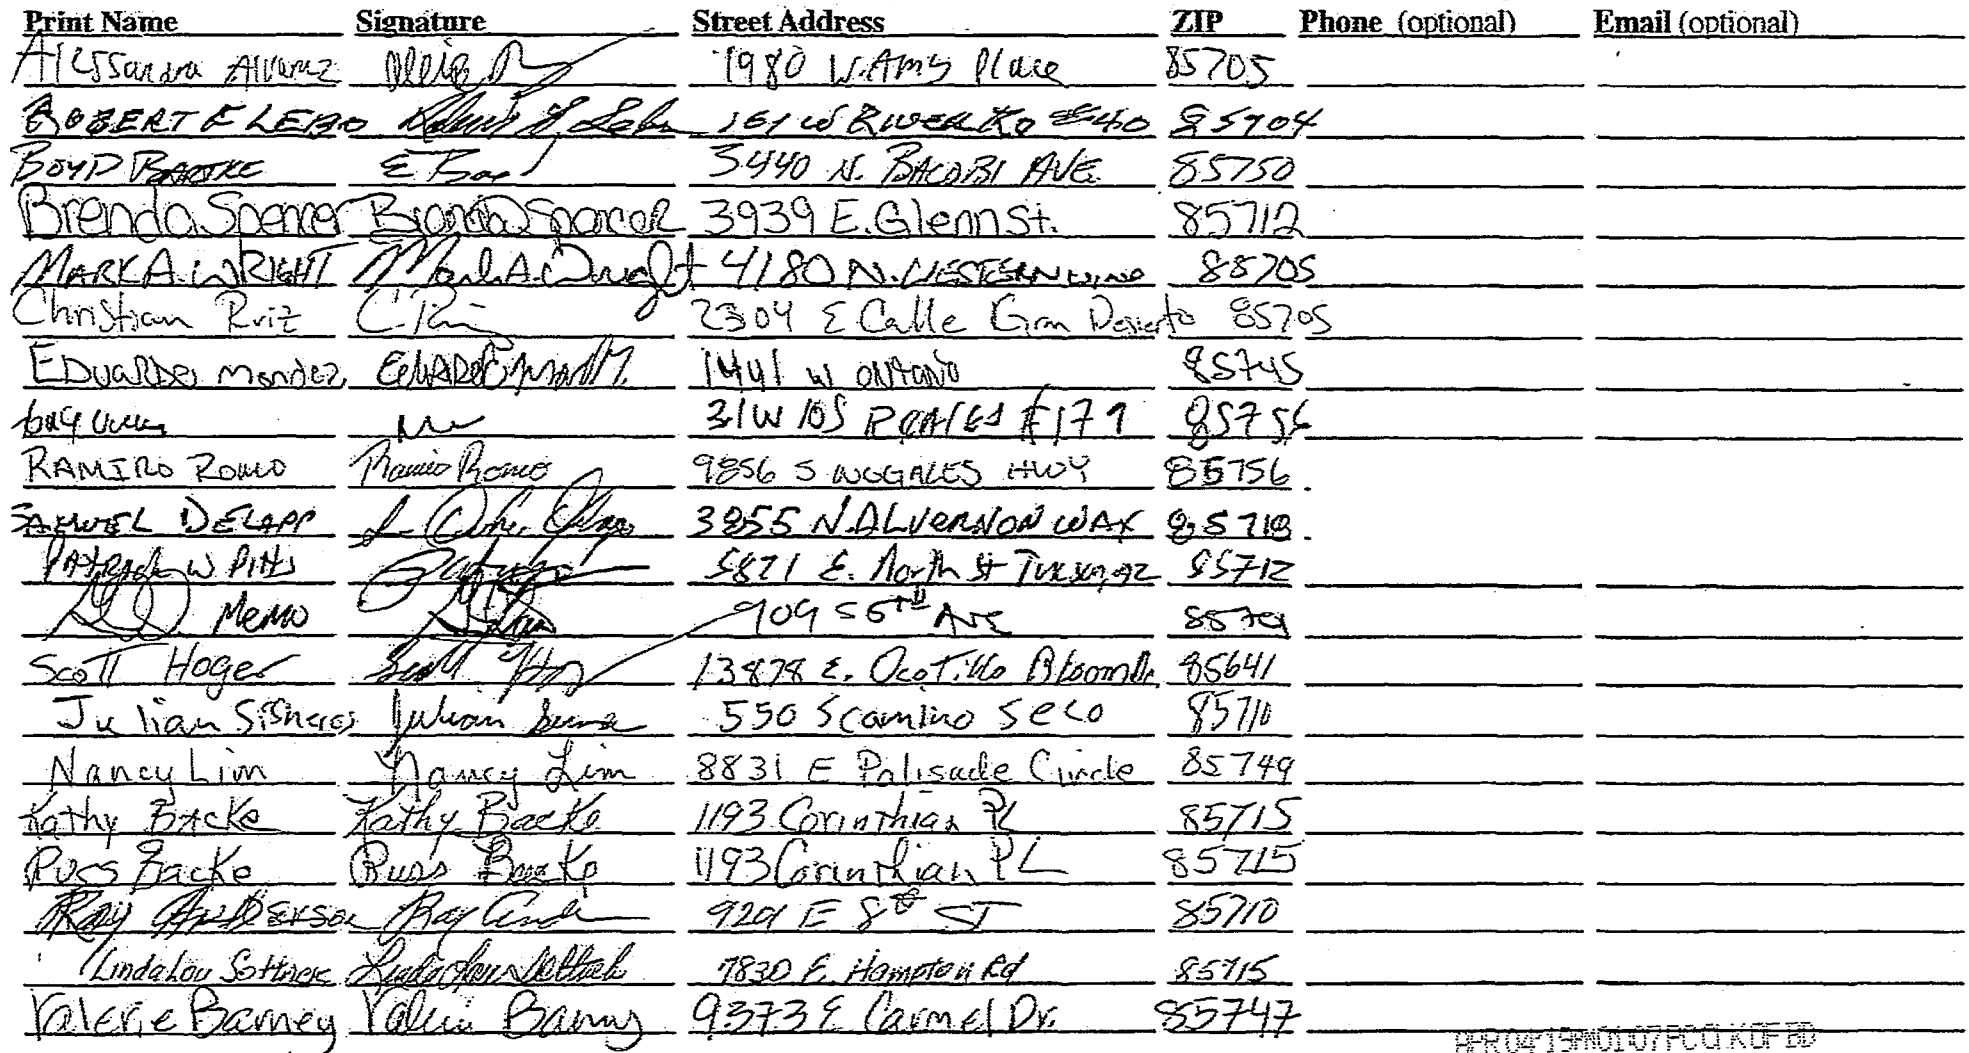 Print Name Signature Street Address ZIP Phone (optional) Email (optional)
Alessandra Alvarez 1980 W. Amy Place 85705
ROBERT E LEBO 101 W RIVER RD #40 85704
BOYD 3440 N. BACOBI AVE. 85750
Brenda Spencer Brenda Spencer 3939 E. Glenn St. 85712
MARK A. WRIGHT Mark A. Wright 4180 N. WESTERN WIND 85705
Christian Ruiz C. Ruiz 2304 E Calle Gran Desierto 85705
EDUARDO Mendez 1441 W ONTARIO 85745
31 W LOS REALES #179 85756
RAMIRO ROMO Ramiro Romo 9856 S NOGALES HWY 85756
SAMUEL DELAPP 3855 N. ALVERNON WAY 85718
PATRICK W Pitts 5871 E. North St Tucson, AZ 85712
Memo 909 S 6TH Ave 85701
Scott Hoger 13878 E. Ocotillo Bloom Dr. 85641
Julian Sisneros Julian 550 S camino Seco 85710
Nancy Lim Nancy Lim 8831 E Palisade Circle 85749
Kathy Backe Kathy Backe 1193 Corinthian Pl 85715
Russ Backe Russ Backe 1193 Corinthian PL 85715
Ray Anderson Ray E 8th ST 85710
LindaLou 7830 E. Hampton Rd 85715
Valerie Barney Valerie Barney 9373 E Carmel Dr. 85747
APR04'19PM0107PCCLKOFBD